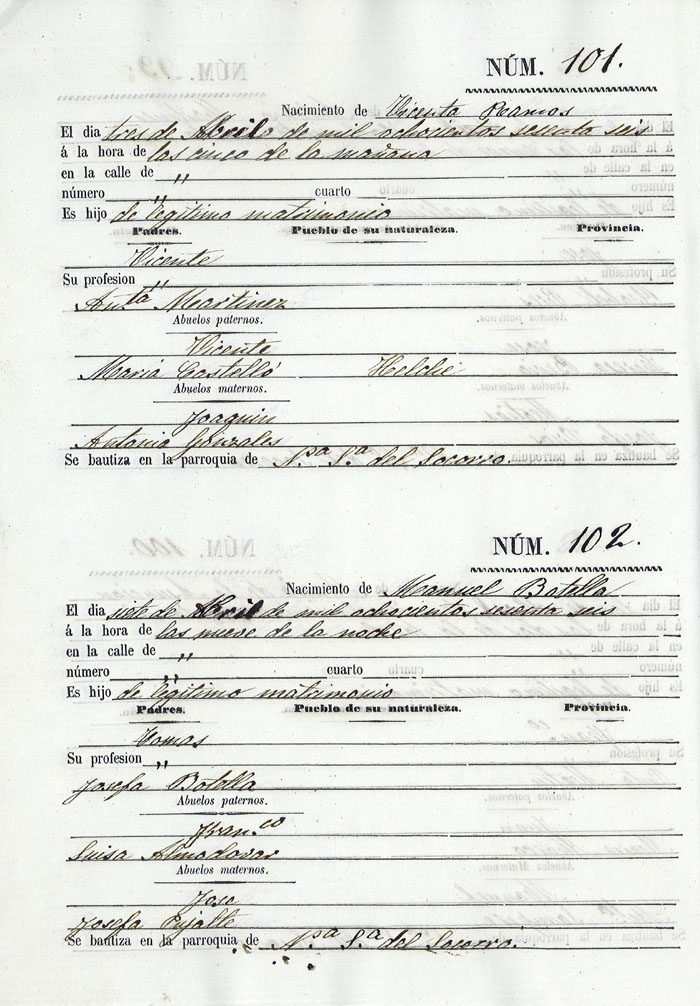 NÚM. 101.
Nacimiento de Vicenta Ramos
El dia tres de Abril de mil ochocientos sesenta seis
á la hora de las cinco de la mañana
en la calle de „
número „ cuarto
Es hijo de legitimo matrimonio
Padres. Pueblo de su naturaleza. Provincia.
Vicente
Su profesion „
Anta Martinez
Abuelos paternos.
Vicente
Maria Castelló Helche
Abuelos maternos.
Joaquin
Antonia Gonzales
Se bautiza en la parroquia de N.ª S.ª del Socorro.
NÚM. 102.
Nacimiento de Manuel Botella
El dia siete de Abril de mil ochocientos sesenta seis
á la hora de las nueve de la noche
en la calle de „
número „ cuarto
Es hijo de legitimo matrimonio
Padres. Pueblo de su naturaleza. Provincia.
Tomas
Su profesion „
Josefa Botella
Abuelos paternos.
Fran.co
Luisa Almodovar
Abuelos maternos.
Jose
Josefa Pujalte
Se bautiza en la parroquia de N.ª S.ª del Socorro.